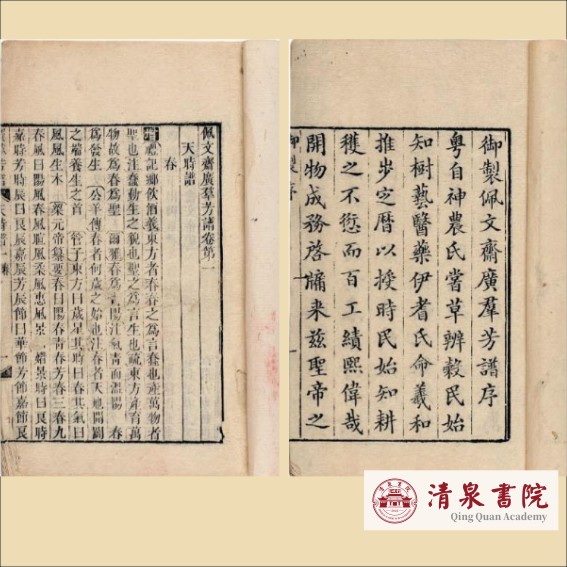 御製佩文齋廣羣芳譜序
粤自神農氏嘗草辨穀民始
知樹藝醫藥伊耆氏命羲和
推步定曆以授時民始知耕
穫之不愆而百工績熙偉哉
開物成務啓牖来兹聖帝之
御製序
佩文齋廣羣芳譜卷第一
天時譜
春
增禮記鄉飲酒義東方者春春之爲言蠢也產萬物者
聖也注蠢動生之貌也聖之言生也疏東方產育萬
物故爲春爲聖 爾雅春爲青陽注氣青而溫陽 春
爲發生 公羊傳春者何歲之始也注春者天地開闢
之端養生之首 管子東方曰歲星其時曰春其氣曰
風風生木 梁元帝纂要春曰青陽芳春青春三春九
春風曰陽風春風暄風柔風惠風景曰媚景時曰良時
嘉時芳時辰曰良辰嘉辰芳辰節曰華節芳節嘉節良
清泉書院
Qing Quan Academy